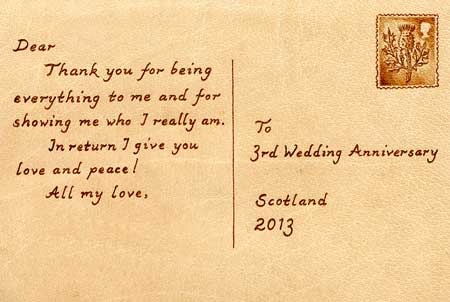 Dear
Thank you for being
everything to me and for
showing me who I really am.
In return I give you
love and peace!
All my love,
To
3rd Wedding Anniversary
Scotland
2013